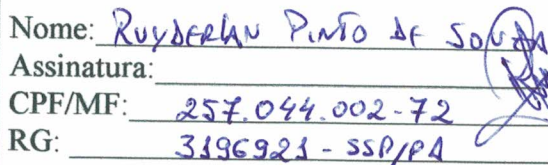 Nome: RUYDERLAN PINTO DE SOUZA
Assinatura:
CPF/MF: 257.044.002-72
RG: 3196921 - SSP/PA